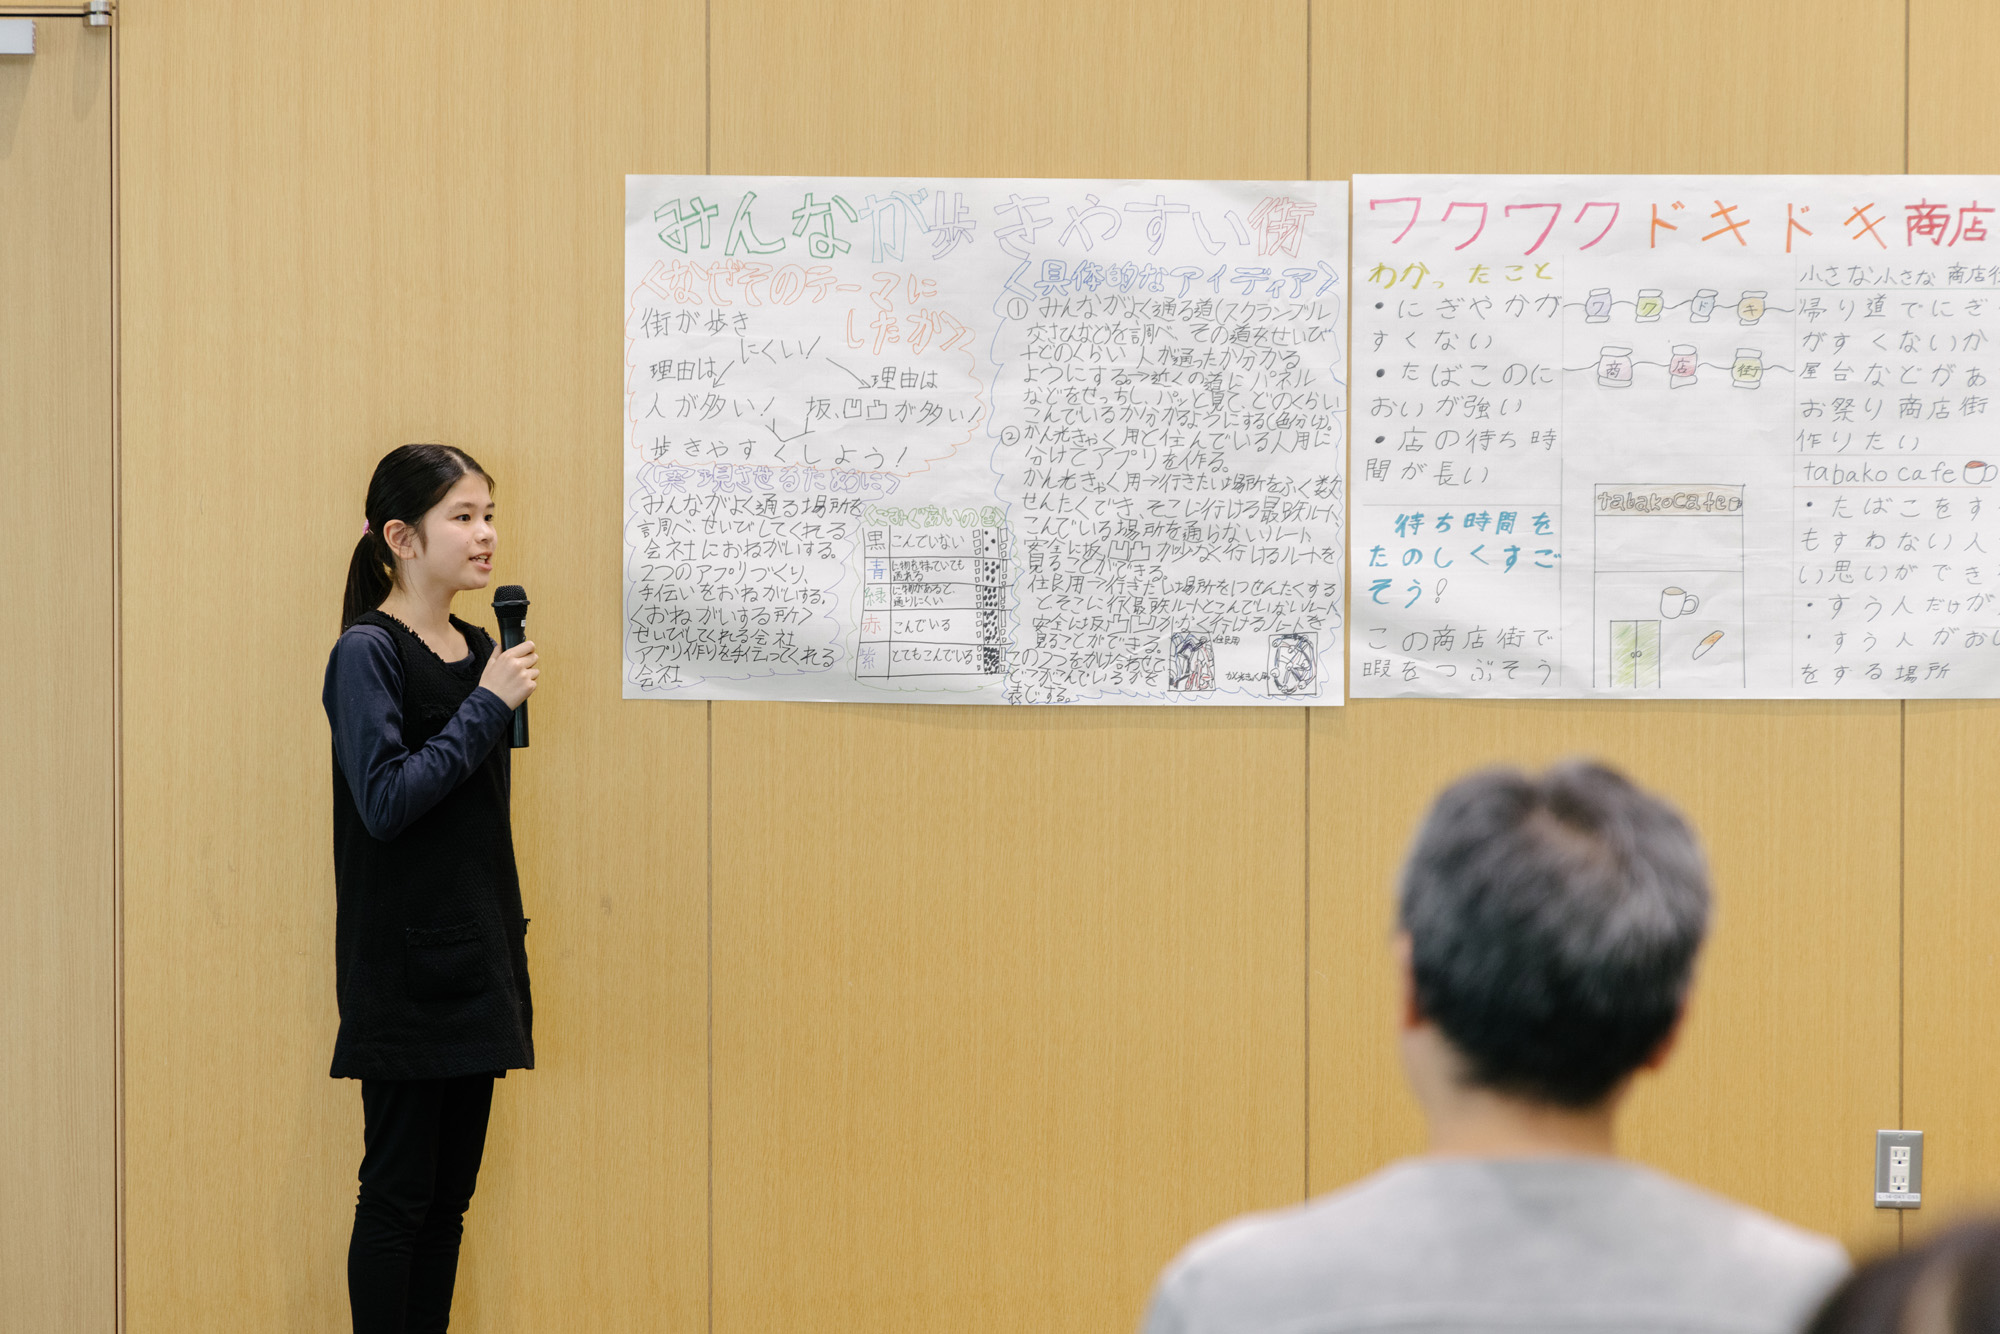 みんなが歩きやすい街
<なぜそのテーマに
したか>
街が歩き
にくい!
理由は
理由は
人が多い!
坂、凹凸が多い!
歩きやすくしよう!
<実現させるために>
みんながよく通る場所を
調べ、せいびしてくれる
会社におねがいする。
2つのアプリづくり、
手伝いをおねがいする。
<おねがいする所>
せいびしてくれる会社
アプリ作りを手伝ってくれる
会社
<こみぐあいの色>
黒 こんでいない
青 に物を持っていても
通れる
緑 に物があると、
通りにくい
赤 こんでいる
紫 とてもこんでいる
<具体的なアイディア>
① みんながよく通る道(スクランブル
交さてんなど)を調べ、その道をせいび
+どのくらい人が通ったか分かる
ようにする。→近くの道にパネル
などをせっちし、パッと見て、どのくらい
こんでいるか分かるようにする(色分け)。
② かん光きゃく用と住んでいる人用に
分けてアプリを作る。
かん光きゃく用→行きたい場所をふく数
せんたくでき、そこに行ける最短ルート、
こんでいる場所を通らないルート
安全に坂、凹凸が少なく行けるルートを
見ることができる。
住民用→行きたい場所を1つせんたくする
とそこに行く最短ルートとこんでいないルート
安全に坂、凹凸が少なく行けるルートを
見ることができる。
この2つをかけ合わせて
どこがこんでいるかを
表じする。
住民用
かん光きゃく用
ワクワクドキドキ商店
わかったこと
・にぎやかが
すくない
・たばこのに
おいが強い
・店の待ち時
間が長い
待ち時間を
たのしくすご
そう!
この商店街で
暇をつぶそう
ワクドキ
商店街
tabakocafe
小さな小さな商店街
帰り道でにぎ
がすくないか
屋台などがあ
お祭り商店街
作りたい
tabako cafe
・たばこをす
もすわない人
い思いができ
・すう人だけが
・すう人がおし
をする場所